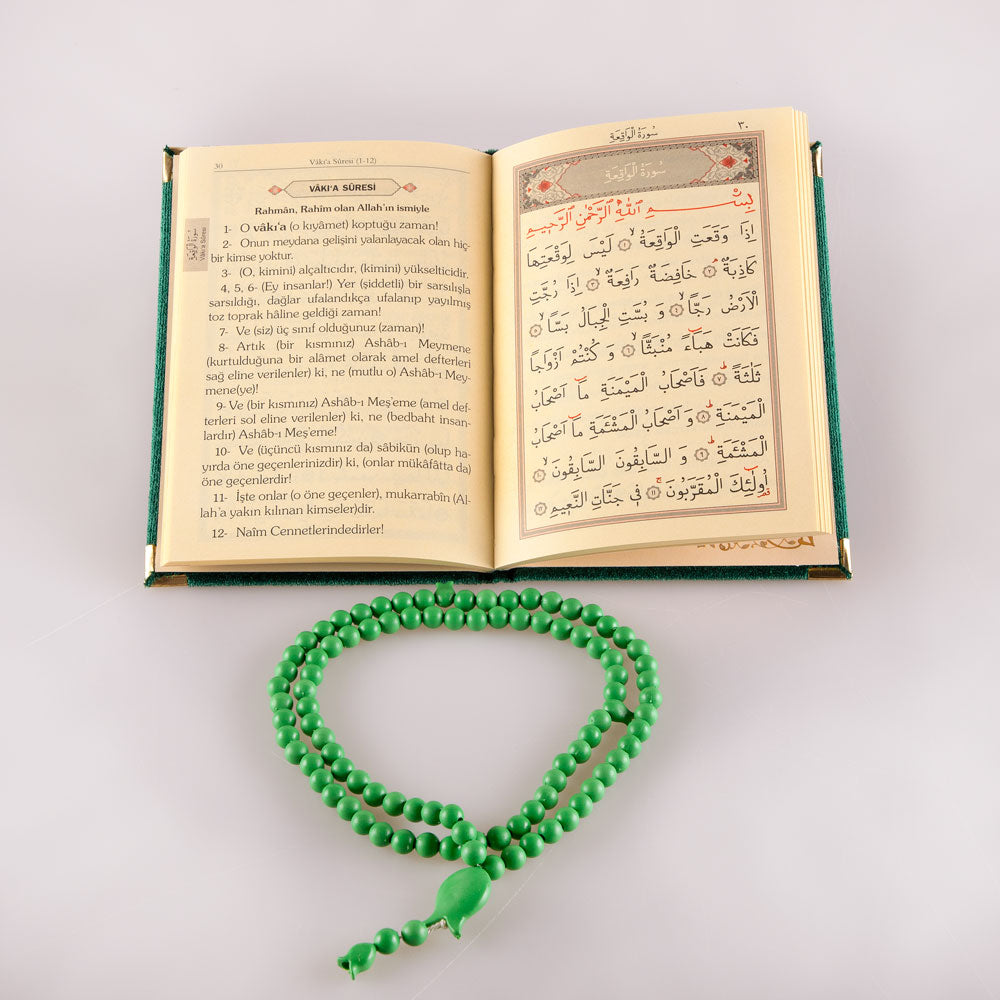 30
Vâkı'a Sûresi (1-12)
VÂKI'A SURESİ
سورة الواقعة
Vâkı'a Sûresi
Rahmân, Rahîm olan Allah'ın ismiyle
1- O vâkı'a (o kıyâmet) koptuğu zaman!
2- Onun meydana gelişini yalanlayacak olan hiç-
bir kimse yoktur.
3- (O, kimini) alçaltıcıdır, (kimini) yükselticidir.
4, 5, 6- (Ey insanlar!) Yer (şiddetli) bir sarsılışla
sarsıldığı, dağlar ufalandıkça ufalanıp yayılmış
toz toprak hâline geldiği zaman!
7- Ve (siz) üç sınıf olduğunuz (zaman)!
8- Artık (bir kısmınız) Ashâb-ı Meymene
(kurtulduğuna bir alâmet olarak amel defterleri
sağ eline verilenler) ki, ne (mutlu o) Ashâb-ı Mey-
mene(ye)!
9- Ve (bir kısmınız) Ashâb-ı Meş'eme (amel def-
terleri sol eline verilenler) ki, ne (bedbaht insan-
lardır) Ashâb-ı Meş'eme!
10- Ve (üçüncü kısmınız da) sâbikün (olup ha-
yırda öne geçenlerinizdir) ki, (onlar mükâfâtta da)
öne geçenlerdir!
11- İşte onlar (o öne geçenler), mukarrabîn (Al-
lah'a yakın kılınan kimseler)dir.
12- Naîm Cennetlerindedirler!
سُورَةُ الْوَاقِعَةِ ٣٠
سُورَةُ الْوَاقِعَةِ
بِسْمِ اللهِ الرَّحْمٰنِ الرَّحِيمِ
اِذَا وَقَعَتِ الْوَاقِعَةُ ﴿١﴾ لَيْسَ لِوَقْعَتِهَا
كَاذِبَةٌ ﴿٢﴾ خَافِضَةٌ رَافِعَةٌ ﴿٣﴾ اِذَا رُجَّتِ
الْاَرْضُ رَجًّا ﴿٤﴾ وَ بُسَّتِ الْجِبَالُ بَسًّا ﴿٥﴾
فَكَانَتْ هَبَاءً مُنْبَثًّا ﴿٦﴾ وَ كُنْتُمْ اَزْوَاجًا
ثَلٰثَةً ﴿٧﴾ فَاَصْحَابُ الْمَيْمَنَةِ مَا اَصْحَابُ
الْمَيْمَنَةِ ﴿٨﴾ وَ اَصْحَابُ الْمَشْئَمَةِ مَا اَصْحَابُ
الْمَشْئَمَةِ ﴿٩﴾ وَ السَّابِقُونَ السَّابِقُونَ ﴿١٠﴾
اُولٰئِكَ الْمُقَرَّبُونَ ﴿١١﴾ فِي جَنَّاتِ النَّعِيمِ ﴿١٢﴾